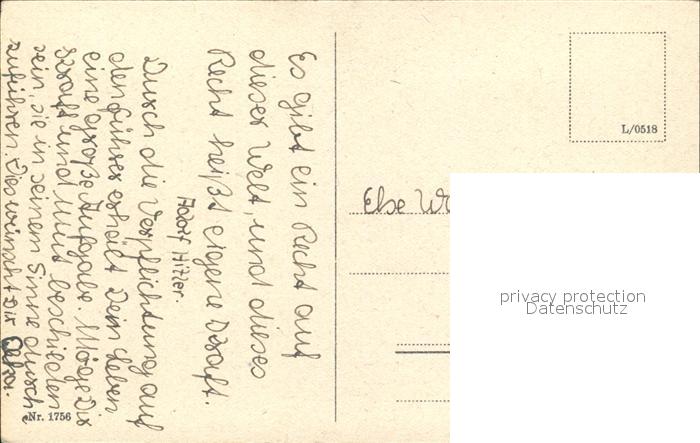 Es gibt ein Recht auf
dieser Welt, und dieses
Recht heißt eigene Kraft.
Adolf Hitler.
Durch die Verpflichtung auf
den Führer erhält Dein Leben
eine große Aufgabe. Möge Dir
Kraft und Mut beschieden
sein, sie in seinem Sinne durch
zuführen. Dies wünscht Dir
Nr. 1756
L/0518
Else
privacy protection
Datenschutz